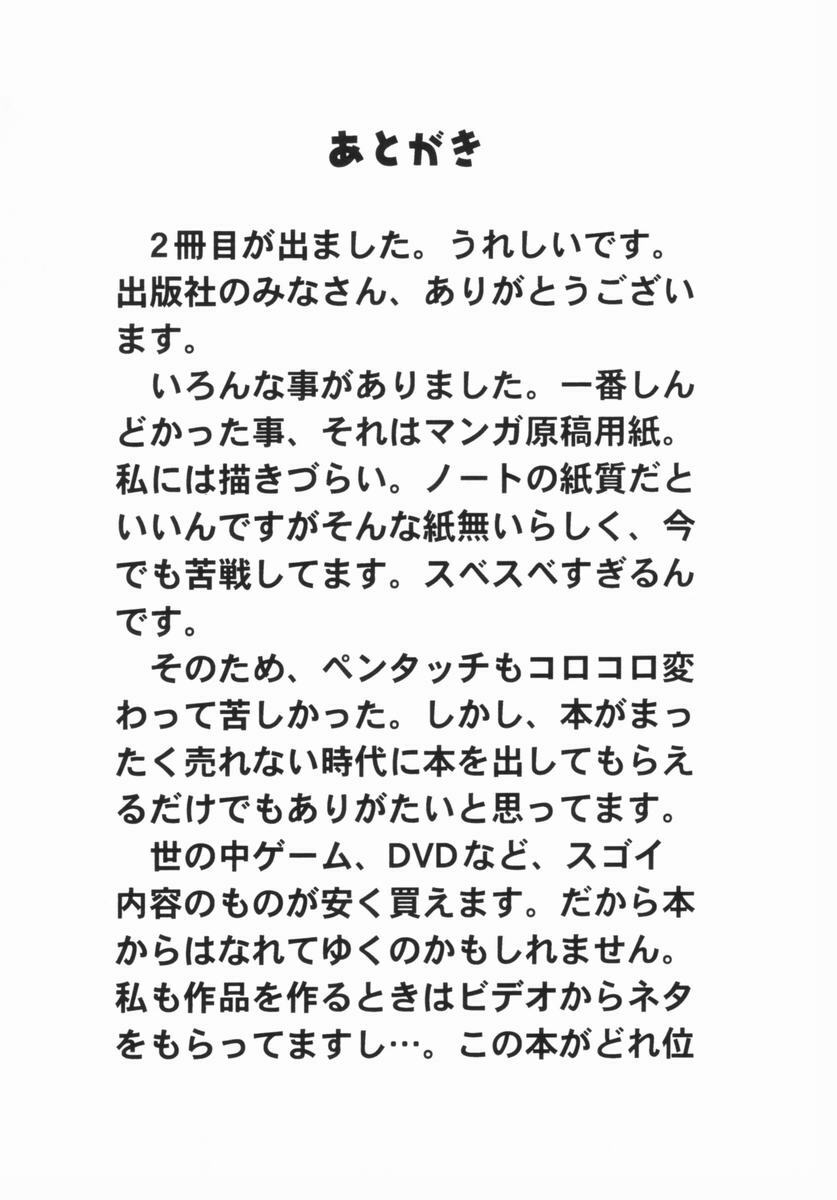 あとがき
　2冊目が出ました。うれしいです。
出版社のみなさん、ありがとうござい
ます。
　いろんな事がありました。一番しん
どかった事、それはマンガ原稿用紙。
私には描きづらい。ノートの紙質だと
いいんですがそんな紙無いらしく、今
でも苦戦してます。スベスベすぎるん
です。
　そのため、ペンタッチもコロコロ変
わって苦しかった。しかし、本がまっ
たく売れない時代に本を出してもらえ
るだけでもありがたいと思ってます。
　世の中ゲーム、DVDなど、スゴイ
内容のものが安く買えます。だから本
からはなれてゆくのかもしれません。
私も作品を作るときはビデオからネタ
をもらってますし…。この本がどれ位